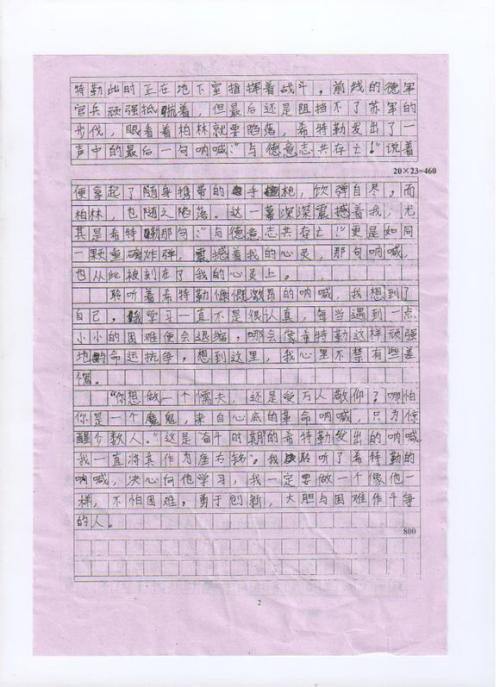 特勒此时正在地下室指挥着战斗。前线的德军
官兵顽强抵抗着，但最后还是阻挡不了苏军的
步伐，眼看着柏林就要陷落，希特勒发出了一
声中的最后一句呐喊：“与德意志共存亡！”说着
20×23=460
便拿起了随身携带的手枪，饮弹自尽，而
柏林，也随之陷落。这一幕深深震撼着我，尤
其是希特勒那句：“与德意志共存亡！”更是如同
一颗重磅炸弹，震撼着我的心灵，那句呐喊，
也从此被刻在了我的心灵上。
聆听着希特勒慷慨激昂的呐喊，我想到了
自己。我学习一直不是很认真，每当遇到一点
小小的困难便会退缩，哪会像希特勒这样顽强
地向命运抗争。想到这里，我心里不禁有些羞
愧。
“你想做一个懦夫，还是受万人敬仰？哪怕
你是一个魔鬼，来自心底的革命呐喊，只为惊
醒个数人。”这是奋斗时期的希特勒发出的呐喊
我一直将其作为座右铭。我聆听了希特勒的
呐喊，决心向他学习，我一定要做一个像他一
样，不怕困难，勇于创新，大胆与困难作斗争
的人。
800
2